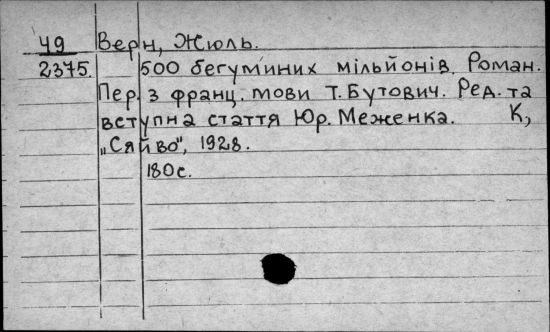 49 Верн, Жюль.
2375. 500 бегуминих мільйонів. Роман.
Пер. з франц. мови Т. Бутович. Ред. та
вступна стаття Юр. Меженка. К,
„Сяйво", 1928.
180с.